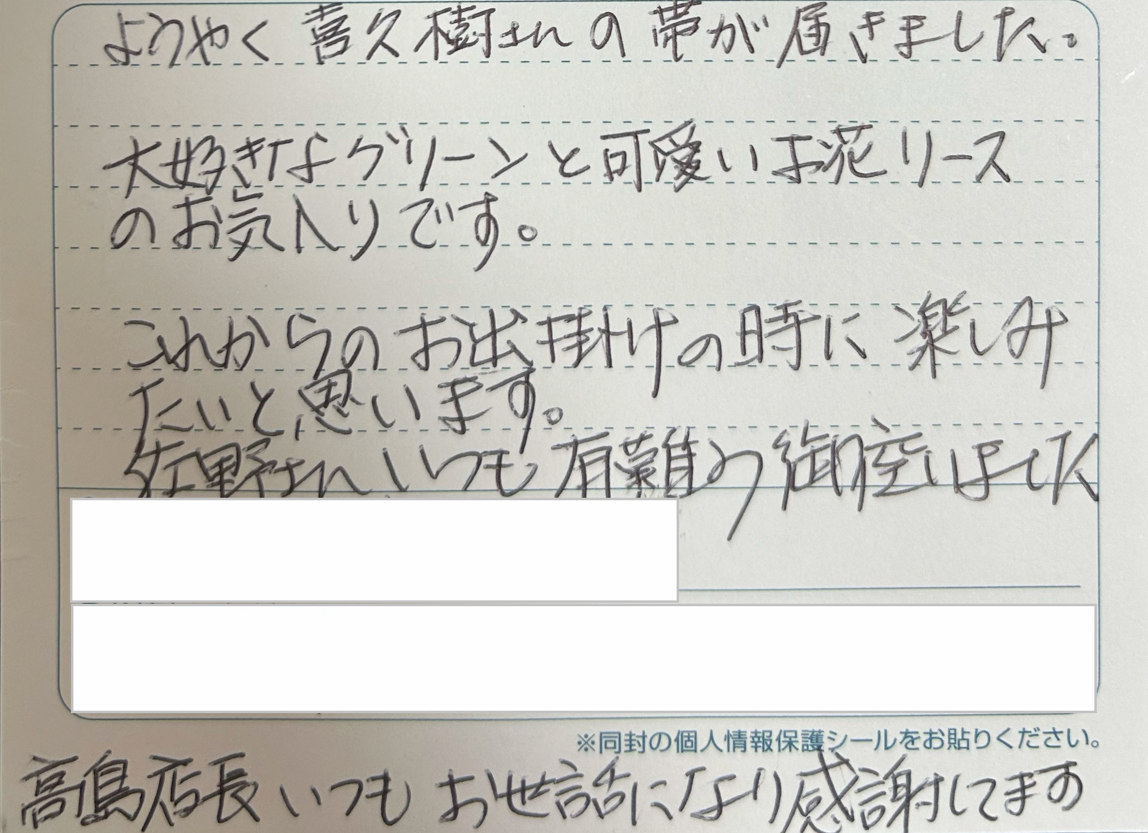 ようやく喜久樹さんの帯が届きました。
大好きなグリーンと可愛いお花リース
のお気入りです。
これからのお出掛けの時に楽しみ
たいと思います。
佐野さんいつも有難う御座いました
※同封の個人情報保護シールをお貼りください。
高島店長いつもお世話になり感謝してます